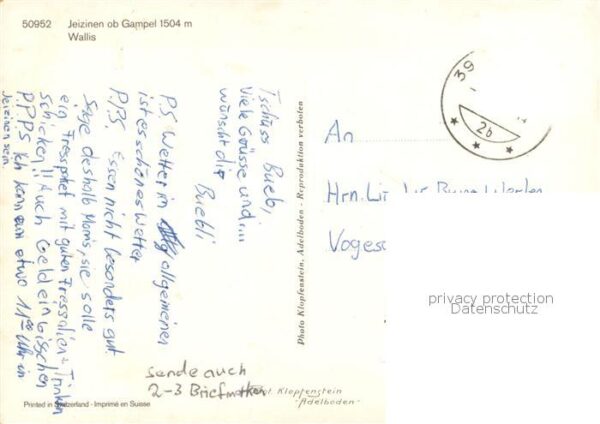 50952 Jeizinen ob Gampel 1504 m
Wallis
Tschüss Buebi,
Viele Grüsse und...
wünscht dir
Buebli
P.S. Wetter im allgemeinen
ist es schönes Wetter
P.P.S. Essen nicht besonders gut.
Sage deshalb Mami, sie solle
ein Fresspaket mit guten Fressalien + Trinken
schicken!! Auch Geld ein bisschen
P.P.P.S Ich kann um etwa 11⁰⁰ Uhr in
Jeizinen sein.
sende auch
2-3 Briefmarken
Photo Klopfenstein, Adelboden - Reproduktion verboten
39
2b
An
Hrn.
privacy protection
Datenschutz
Klopfenstein
"Adelboden"
Printed in Switzerland - Imprimé en Suisse